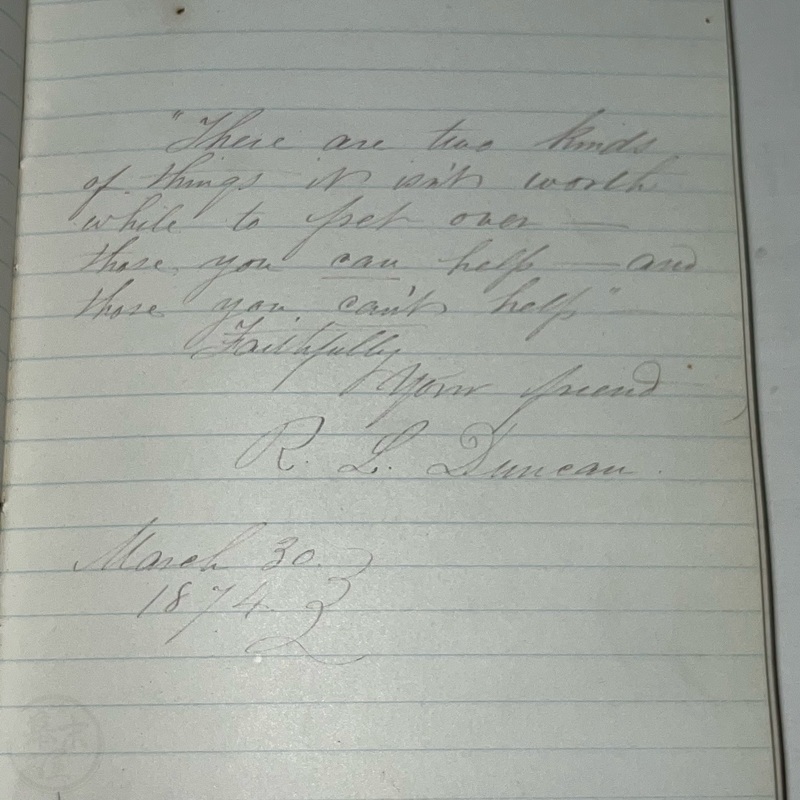 "There are two kinds
of things it isn't worth
while to fret over —
those you can help — and
those you can't help" —
Faithfully
Your friend
R. L. Duncan.
March 30.
1874.